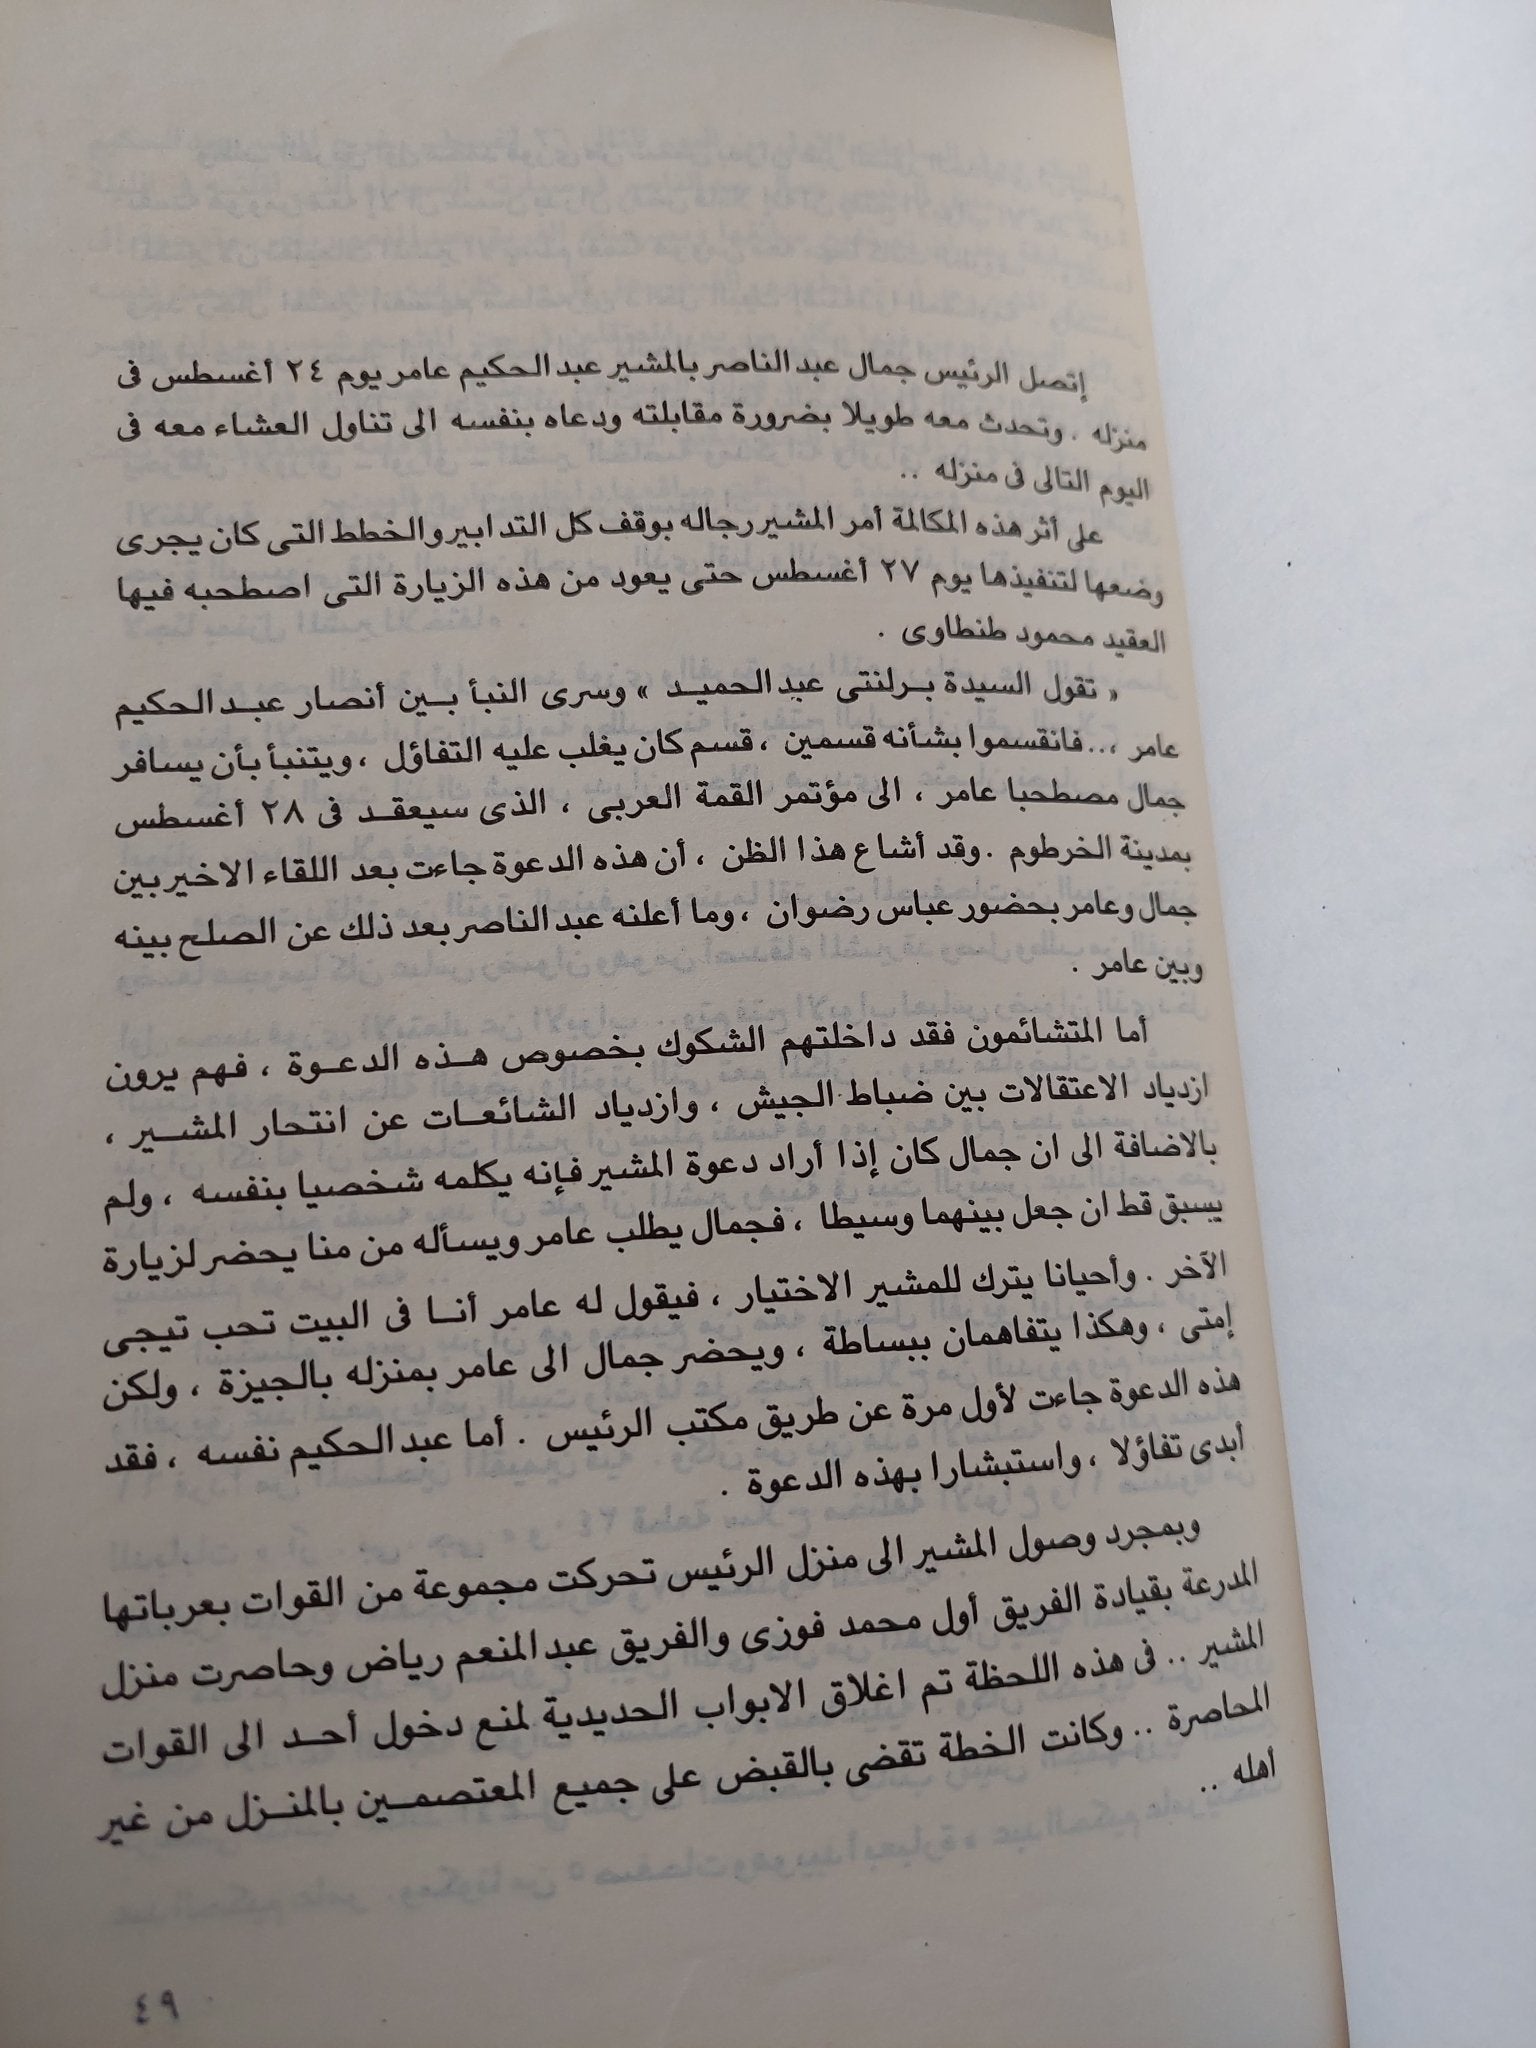 إتصل الرئيس جمال عبد الناصر بالمشير عبد الحكيم عامر يوم ٢٤ أغسطس فى
منزله . وتحدث معه طويلا بضرورة مقابلته ودعاه بنفسه الى تناول العشاء معه فى
اليوم التالى فى منزله ..
على أثر هذه المكالمة أمر المشير رجاله بوقف كل التدابير والخطط التى كان يجرى
وضعها لتنفيذها يوم ٢٧ أغسطس حتى يعود من هذه الزيارة التى اصطحبه فيها
العقيد محمود طنطاوى .
« تقول السيدة برلنتى عبد الحميد » وسرى النبأ بين أنصار عبد الحكيم
عامر ،.. فانقسموا بشأنه قسمين ، قسم كان يغلب عليه التفاؤل ، ويتنبأ بأن يسافر
جمال مصطحبا عامر ، الى مؤتمر القمة العربى ، الذى سيعقد فى ٢٨ أغسطس
بمدينة الخرطوم . وقد أشاع هذا الظن ، أن هذه الدعوة جاءت بعد اللقاء الاخير بين
جمال وعامر بحضور عباس رضوان ، وما أعلنه عبد الناصر بعد ذلك عن الصلح بينه
وبين عامر .
أما المتشائمون فقد داخلتهم الشكوك بخصوص هذه الدعوة ، فهم يرون
ازدياد الاعتقالات بين ضباط الجيش ، وازدياد الشائعات عن انتحار المشير ،
بالاضافة الى ان جمال كان إذا أراد دعوة المشير فإنه يكلمه شخصيا بنفسه ، ولم
يسبق قط ان جعل بينهما وسيطا ، فجمال يطلب عامر ويسأله من منا يحضر لزيارة
الآخر . وأحيانا يترك للمشير الاختيار ، فيقول له عامر أنا فى البيت تحب تيجى
إمتى ، وهكذا يتفاهمان ببساطة ، ويحضر جمال الى عامر بمنزله بالجيزة ، ولكن
هذه الدعوة جاءت لأول مرة عن طريق مكتب الرئيس . أما عبد الحكيم نفسه ، فقد
أبدى تفاؤلا ، واستبشارا بهذه الدعوة .
وبمجرد وصول المشير الى منزل الرئيس تحركت مجموعة من القوات بعرباتها
المدرعة بقيادة الفريق أول محمد فوزى والفريق عبد المنعم رياض وحاصرت منزل
المشير .. فى هذه اللحظة تم اغلاق الابواب الحديدية لمنع دخول أحد الى القوات
المحاصرة .. وكانت الخطة تقضى بالقبض على جميع المعتصمين بالمنزل من غير
أهله ..
٤٩